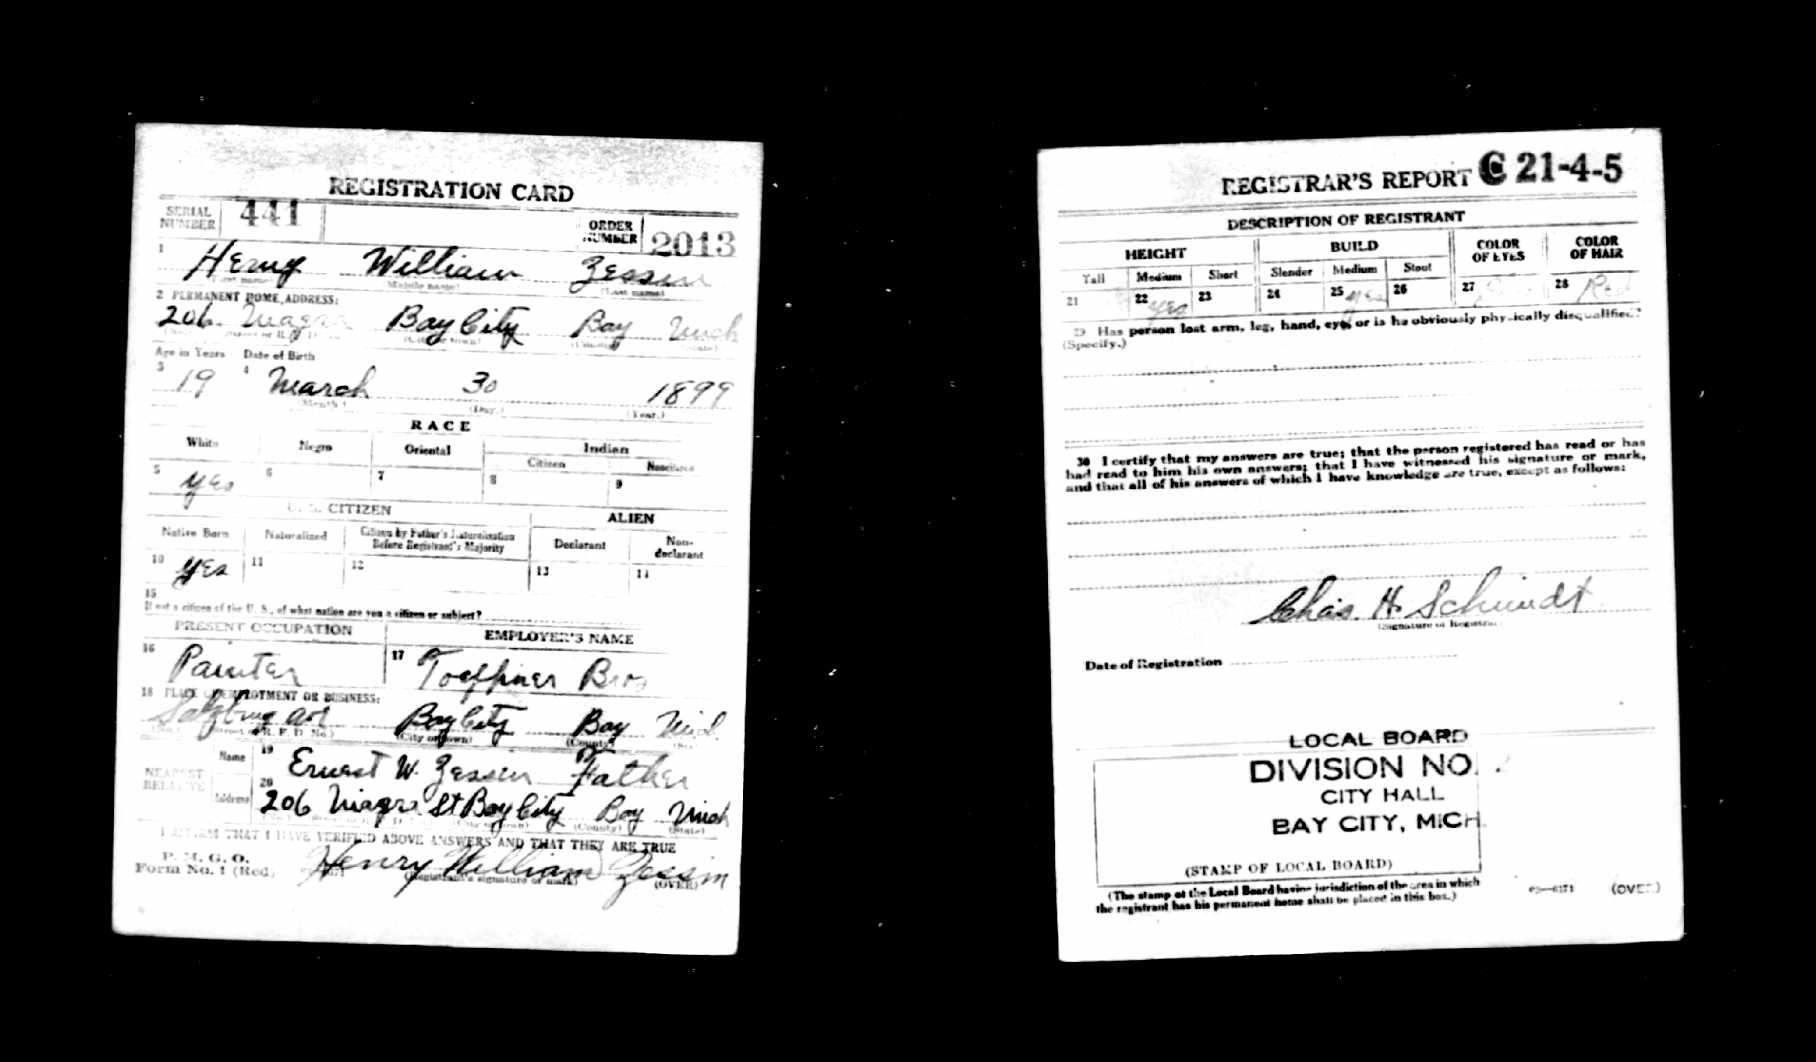 REGISTRATION CARD
SERIAL NUMBER 441 ORDER NUMBER 2013
1 Henry William Zessin
(First name) (Middle name) (Last name)
2 PERMANENT HOME ADDRESS:
206 Niagra Bay City Bay Mich
(No.) (Street or R. F. D. No.) (City or town) (County) (State)
Age in Years Date of Birth
3 19 4 March 30 1899
(Month.) (Day.) (Year.)
RACE
White Negro Oriental Indian
Citizen Noncitizen
5 yes 6 7 8 9
U. S. CITIZEN ALIEN
Native Born Naturalized Citizen by Father's Naturalization Before Registrant's Majority Declarant Non-declarant
10 yes 11 12 13 14
15
If not a citizen of the U. S., of what nation are you a citizen or subject?
PRESENT OCCUPATION EMPLOYER'S NAME
16 Painter 17 Toeppner Bros
18 PLACE OF EMPLOYMENT OR BUSINESS:
Salzburg Bay City Bay Mich.
(No.) (Street or R. F. D. No.) (City or town) (County) (State)
NEAREST RELATIVE Name 19 Ernest W. Zessin Father
Address 20 206 Niagra St Bay City Bay Mich
(County) (State)
I AFFIRM THAT I HAVE VERIFIED ABOVE ANSWERS AND THAT THEY ARE TRUE
P. M. G. O.
Form No. 1 (Red) Henry William Zessin
(Registrant's signature or mark) (OVER)
REGISTRAR'S REPORT C 21-4-5
DESCRIPTION OF REGISTRANT
HEIGHT BUILD COLOR OF EYES COLOR OF HAIR
Tall Medium Short Slender Medium Stout
21 22 yes 23 24 25 yes 26 27 28 Red
29 Has person lost arm, leg, hand, eye, or is he obviously physically disqualified?
(Specify.)
30 I certify that my answers are true; that the person registered has read or has
had read to him his own answers; that I have witnessed his signature or mark,
and that all of his answers of which I have knowledge are true, except as follows:
Chas. H. Schmidt
(Signature of Registrar)
Date of Registration
LOCAL BOARD
DIVISION NO.
CITY HALL
BAY CITY, MICH.
(STAMP OF LOCAL BOARD)
(The stamp of the Local Board having jurisdiction of the area in which
the registrant has his permanent home shall be placed in this box.)
(OVER)